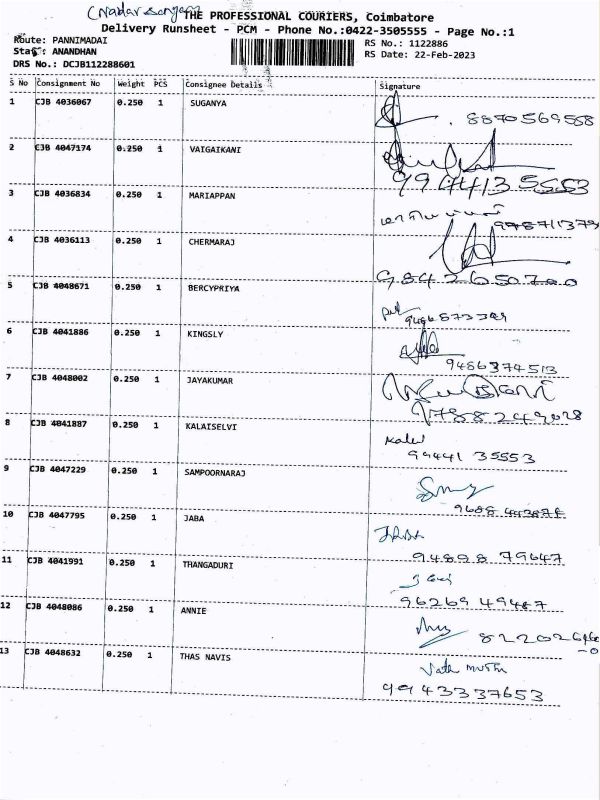 (Nadar Sangam
THE PROFESSIONAL COURIERS, Coimbatore
Delivery Runsheet - PCM - Phone No.:0422-3505555 - Page No.:1
Route: PANNIMADAI
RS No.: 1122886
Staff: ANANDHAN
RS Date: 22-Feb-2023
DRS No.: DCJB112288601
S No Consignment No Weight PCS Consignee Details Signature
1 CJB 4036067 0.250 1 SUGANYA
8870569588
2 CJB 4047174 0.250 1 VAIGAIKANI
9944135553
3 CJB 4036834 0.250 1 MARIAPPAN
மாரியப்பன்
4 CJB 4036113 0.250 1 CHERMARAJ
9842650700
5 CJB 4048671 0.250 1 BERCYPRIYA
6 CJB 4041886 0.250 1 KINGSLY
9486374513
7 CJB 4048002 0.250 1 JAYAKUMAR
8 CJB 4041887 0.250 1 KALAISELVI
99441 35553
9 CJB 4047229 0.250 1 SAMPOORNARAJ
10 CJB 4047795 0.250 1 JABA
94898 79647
11 CJB 4041991 0.250 1 THANGADURI
96269 49487
12 CJB 4048086 0.250 1 ANNIE
13 CJB 4048632 0.250 1 THAS NAVIS
9943337653